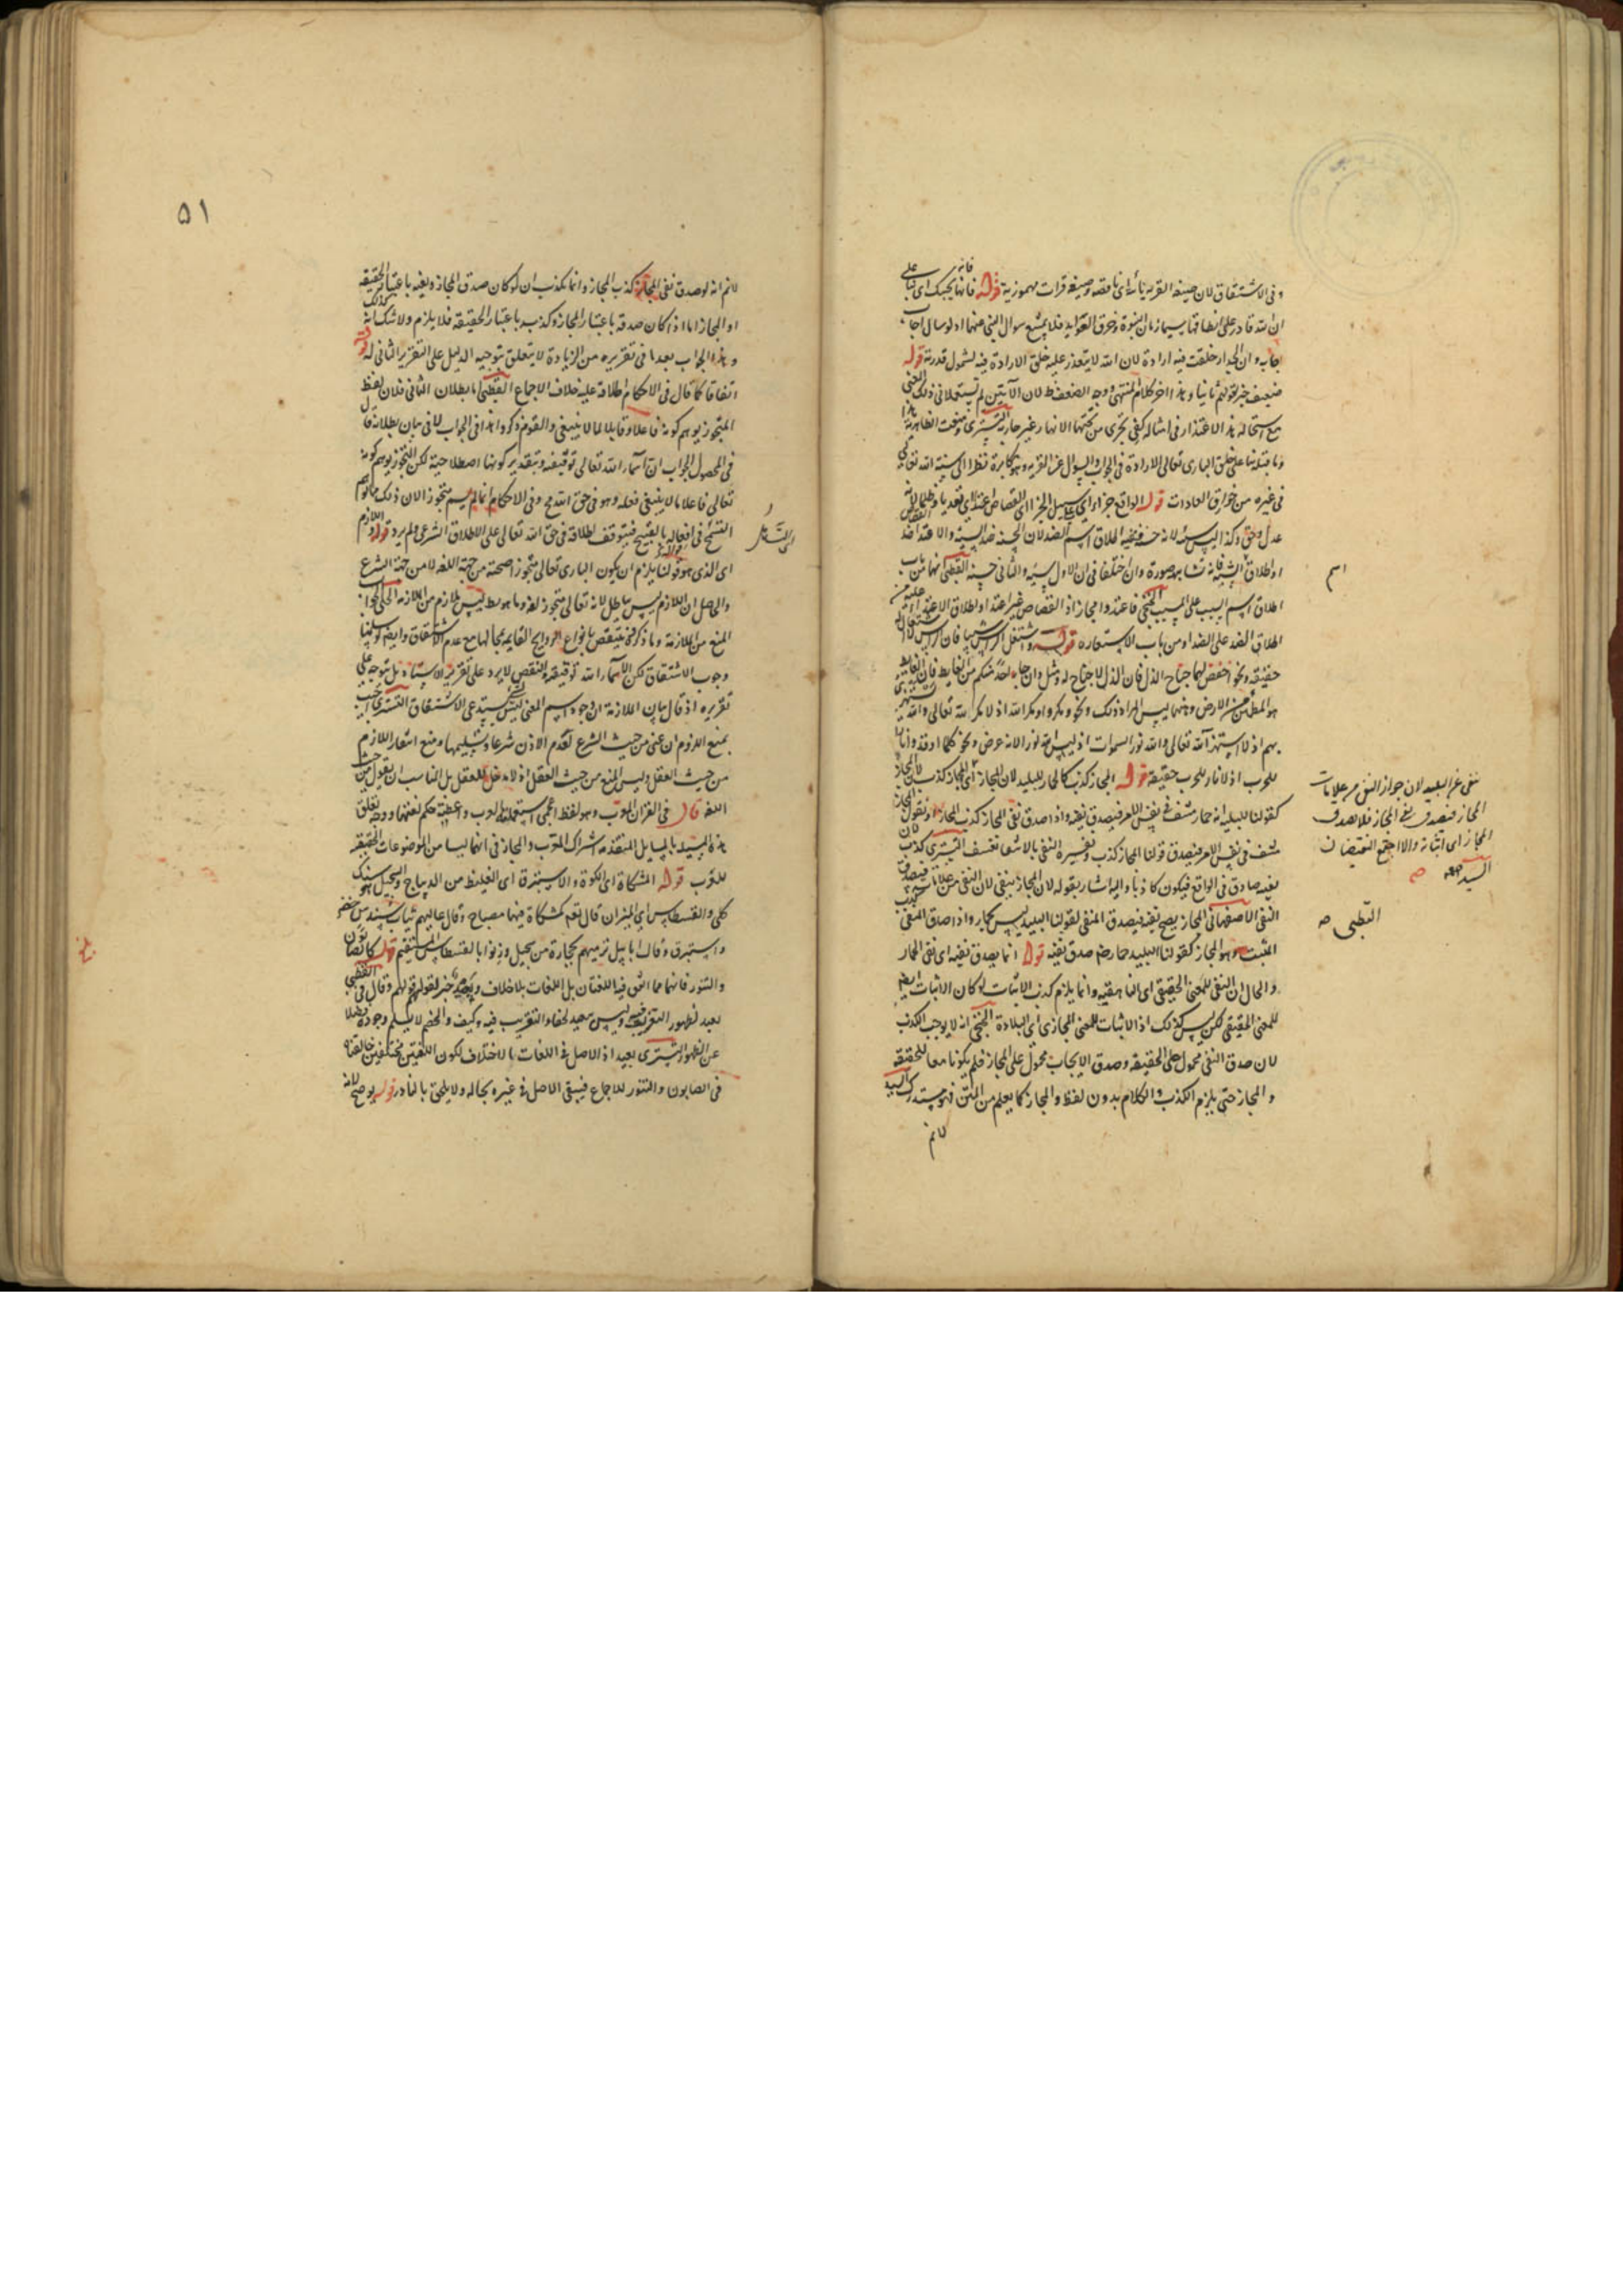 وفى الاشتقاق لان صيغة القرية يائية اى ناقصة وصيغة قرات مهموزية قوله فانها تجيبك اى بناء على
ان الله قادر على انطاقها سيما زمان النبوة وخرق العوايد فلا يمتنع سوال النبى عنها اذ لو سال اجاب
جابه وان الجدار خلقت فيه ارادة لان الله لا يتعذر عليه خلق الارادة فيه لشمول قدرته قوله
ضعيف خبر لقولهم ثانيا وهذا اخر كلام المنتهى ووجه الضعف لان الآيتين لم تستعملا فى ذلك المعنى
مع استحالة هذا الاعتذار فى امثاله كفى تجرى من تحتها الانهار غير جارية التسترى ومنعت الظاهرية هذا
وما قبله بناء على خلق البارى تعالى الارادة فى الجواب والسوال عن القرية وهو مكابرة نظرا الى سنة الله تعالى
فى غيره من خوارق العادات قوله الواقع جزاء اى على سبيل الجزاء اى القصاص اعتداء اى تعديا وظلما لانه
عدل وحق وكذا ليس سيئة لانه حسن ففيه اطلاق اسم الضد لان الحسنة ضد السيئة والاعتداء ضد القصاص
او اطلاق الشبيه فانه تشابهه صورة وان اختلفا فى ان الاول سيئة والثانى حسنة القطبى كلها من باب
اطلاق اسم السبب على المسبب الخنجى فاعتدوا مجاز اذ القصاص غير اعتداء او اطلاق الاعتداء عليه من
اطلاق الضد على الضد او من باب الاستعارة قوله واشتعل الراس شيبا فان الراس لا اشتعال له
حقيقة ونحو اخفض لهما جناح الذل فان الذل لا جناح له ومثل وان جاء احد منكم من الغايط فان الغايط
هو المطمئن من الارض وههنا ليس المراد ذلك ونحو ومكروا ومكر الله اذ لا مكر لله تعالى والله يستهزئ
بهم اذ لا يستهزئ الله تعالى والله نور السموات اذ ليس الله نورا لانه عرض ونحو كلما اوقدوا نارا
للحرب اذ لا نار للحرب حقيقة قوله المجاز كذب كالحمار للبليد لان المجاز اى المجاز كذب لان المجاز
كقولنا للبليد انه حمار منتف فى نفس الامر فيصدق نفيه واذا صدق نفى المجاز كذب المجاز او نقول المجاز
منتف فى نفس الامر فيصدق قولنا المجاز كذب وتفسيره النفى بالانتفاء تعسف التسترى كذب لان
نفيه صادق فى الواقع فيكون كاذبا واليه اشار بقوله لان المجاز ينفى لان النفى من علاماته فيصدق
النفى الاصفهانى المجاز يصح نفيه فيصدق المنفى لقولنا البليد ليس بحمار واذا صدق المنفى كذب
المثبت وهو المجاز كقولنا البليد حمار ضد صدق نفيه قوله انما يصدق نفيه اى نفى الحمار
والحال ان النفى للمعنى الحقيقى اى الناهقية وانما يلزم كذب الاثبات لو كان الاثبات ايضا
للمعنى الحقيقى لكن ليس كذلك اذ الاثبات للمعنى المجازى اى البلادة الخنجى انه لا يوجب الكذب
لان صدق النفى محمول على الحقيقة وصدق الايجاب محمول على المجاز فلم يكونا معا للحقيقة
والمجاز حتى يلزم الكذب والكلام بدون لفظ والمجاز كما يعلم من المتن فهو مستدرك السيد
لا نم
اسم
نفى عن البليد لان جواز النفى من علامات
المجاز فيصدق نفى المجاز فلا يصدق
المجاز اى اثباته والا اجتمع النقيضان
السيد
القطبى صح
٥١
لا نم انه لو صدق نفى المجاز كذب المجاز وانما يكذب ان لو كان صدق المجاز ونفيه باعتبار الحقيقة
او المجاز اما اذا كان صدقه باعتبار المجاز وكذبه باعتبار الحقيقة فلا يلزم ولا شك انه كذلك
وهذا الجواب بعد ما فى تقريره من الزيادة لا يتعلق بتوجيه الدليل على التقرير الثانى له قوله
اتفاقا كما قال فى الاحكام اطلاقه عليه خلاف الاجماع القطبى اما بطلان الثانى فلان لفظ
المتجوز يوهم كونه فاعلا وقايلا لما لا ينبغى والقوم ذكروا هذا فى الجواب لا فى بيان بطلانه قال
فى المحصول الجواب ان اسماء الله تعالى توقيفية وبتقدير كونها اصطلاحية لكن التجوز يوهم كونه
تعالى فاعلا ما لا ينبغى فعله وهو فى حق الله مح وفى الاحكام انما لم يسم متجوزا لان ذلك مما يوهم
التسمح فى افعاله بالقبيح فيتوقف اطلاقه فى حق الله تعالى على الاطلاق الشرعى ولم يرد قوله اللازم
اى الذى هو قولنا يلزم ان يكون البارى تعالى متجوزا صحته من جهة اللغة لا من جهة الشرع
والحاصل ان اللازم ليس بباطل لانه تعالى متجوز لغة وما هو باطل ليس بلازم من الملازمة الحلى الجواب
المنع من الملازمة وما ذكر فى ينتقض بانواع الروايح القايمة بمحالها مع عدم الاشتقاق وايضا لو سلمنا
وجوب الاشتقاق لكن اسماء الله توقيفية والنقض لا يرد على تقرير الاستاد بل يتوجه على
تقريره اذ قال بيان الملازمة ان وجود اسم المعنى ليس يستدعى الاشتقاق التسترى اجيب
بمنع اللزوم ان عنى من حيث الشرع لعدم الاذن شرعا وتسليمها ومنع انتفاء اللازم
من حيث العقل وليس المنع من حيث العقل اذ لا مدخل للعقل بل المناسب ان يقول من حيث
اللغة قال فى القران المعرب وهو لفظ اعجمى استعملته العرب واعطته حكم لغتها ووجه تعلق
هذه المسئلة بالمسايل المتقدمة اشتراك المعرب والمجاز فى انهما ليسا من الموضوعات الحقيقية
للعرب قوله المشكاة اى الكوة والاستبرق اى الغليظ من الديباج والسجيل هو سنك
كل والقسطاس اى الميزان قال تعالى كمشكاة فيها مصباح وقال عاليهم ثياب سندس خضر
واستبرق وقال ابابيل ترميهم بحجارة من سجيل وزنوا بالقسطاس المستقيم قوله كالصابون
والتنور فانهما مما اتفق فيه اللغتان بل اللغات بلا خلاف وبعيد خبر لقوله قولهم وقال القطبى فى
بعيد لظهور التعريب وليس ببعيد لخفاء التعريب فيه وكيف والخصم لا يسلم وجوده فضلا
عن الظهور التسترى بعيد اذ الاصل فى اللغات بالاختلاف لكون اللغتين مختلفتين خالفناه
فى الصابون والتنور للاجماع فيبقى الاصل فى غيره بحاله ولا يلحق بالنادر قوله يوضح لانه